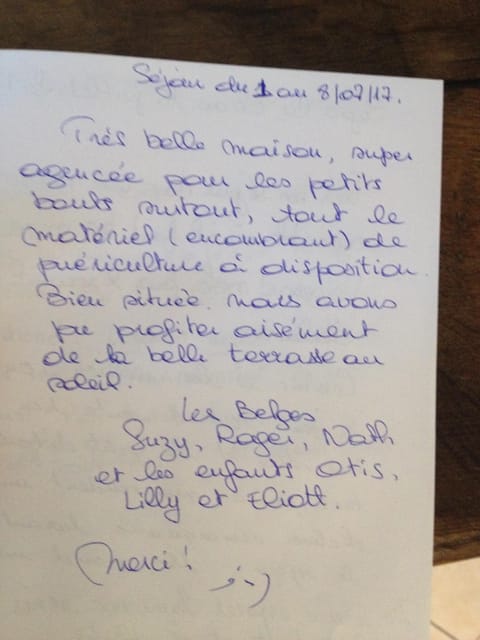 Séjour du 1 au 8/07/17.
Très belle maison, super
agencée pour les petits
bouts surtout, tout le
matériel (encombrant) de
puériculture à disposition.
Bien située. nous avons
pu profiter aisément
de la belle terrasse au
soleil.
Les Belges
Suzy, Roger, Nath
et les enfants Otis,
Lilly et Eliott.
Merci ! ;-)